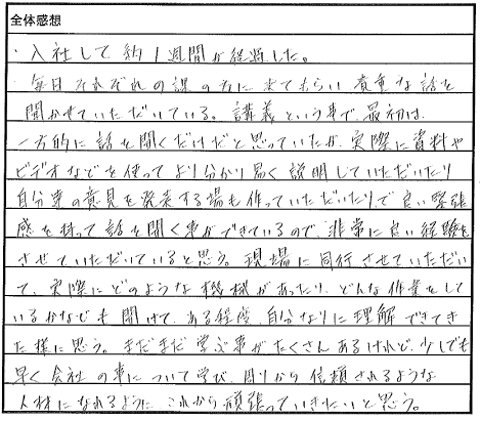 全体感想
・入社して約1週間が経過した。
毎日それぞれの課の方に来てもらい貴重な話を
聞かせていただいている。講義という事で、最初は
一方的に話を聞くだけだと思っていたが、実際に資料や
ビデオなどを使ってより分かり易く説明していただいたり
自分達の意見を発表する場も作っていただいたりで良い緊張
感を持って話を聞く事ができているので、非常に良い経験を
させていただいていると思う。現場に同行させていただい
て、実際にどのような機械があったり、どんな作業をして
いるかなども聞けて、ある程度、自分なりに理解できてき
た様に思う。まだまだ学ぶ事がたくさんあるけれど、少しでも
早く会社の事について学び、周りから信頼されるような
人材になれるようにこれから頑張っていきたいと思う。